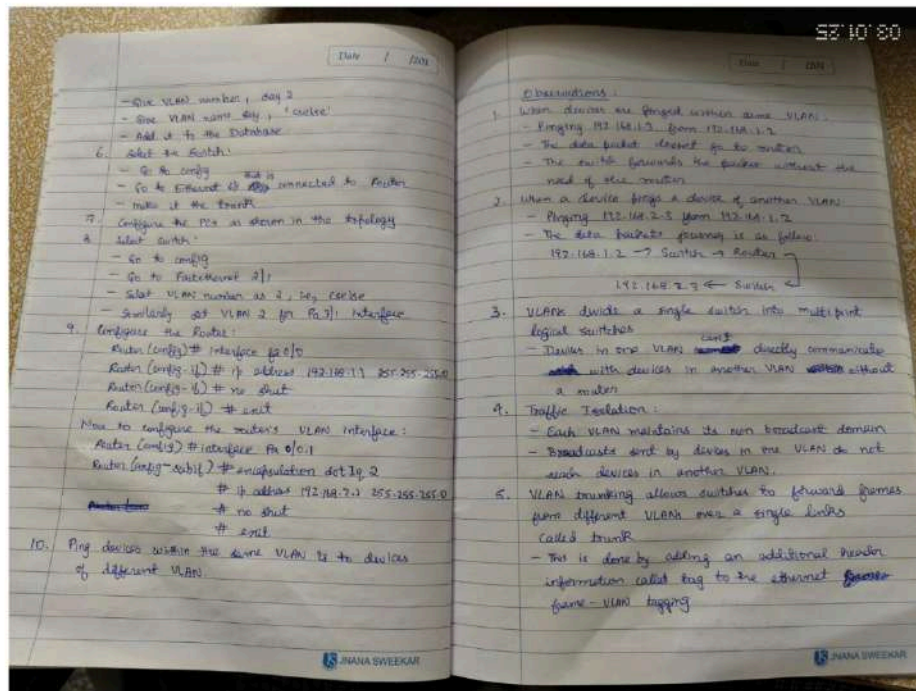 03.01.25
Date / /202
- Give VLAN number, say 2
- Give VLAN name say, 'cselse'
- Add it to the Database
6. Select the Switch:
- Go to config
- Go to Ethernet 6/1 that is connected to Router
- make it the trunk
7. Configure the PCs as shown in the topology
8. Select switch:
- Go to config
- Go to FastEthernet 2/1
- Select VLAN number as 2, ie, cselse
- Similarly set VLAN 2 for Fa 3/1 interface
9. Configure the Router:
Router (config) # interface fa 0/0
Router (config-if) # ip address 192.168.1.1 255.255.255.0
Router (config-if) # no shut
Router (config-if) # exit
Now to configure the router's VLAN interface:
Router (config) # interface Fa 0/0.1
Router (config-subif) # encapsulation dot1q 2
# ip address 192.168.2.1 255.255.255.0
# no shut
# exit
10. Ping devices within the same VLAN & to devices
of different VLAN.
JNANA SWEEKAR
Date / /202
Observations:
1. When devices are pinged within same VLAN.
- Pinging 192.168.1.3 from 192.168.1.2
- The data packet doesnt go to router
- The switch forwards the packet without the
need of the router
2. When a device pings a device of another VLAN
- Pinging 192.168.2.3 from 192.168.1.2
- The data packets journey is as follow:
192.168.1.2 → Switch → Router
192.168.2.3 ← Switch ←
3. VLANs divide a single switch into multiple
logical switches
- Devices in one VLAN cant directly communicate
with devices in another VLAN without
a router
4. Traffic Isolation:
- Each VLAN maintains its own broadcast domain
- Broadcasts sent by devices in one VLAN do not
reach devices in another VLAN.
5. VLAN trunking allows switches to forward frames
from different VLANs over a single links
called trunk
- This is done by adding an additional header
information called tag to the ethernet
frame - VLAN tagging
JNANA SWEEKAR